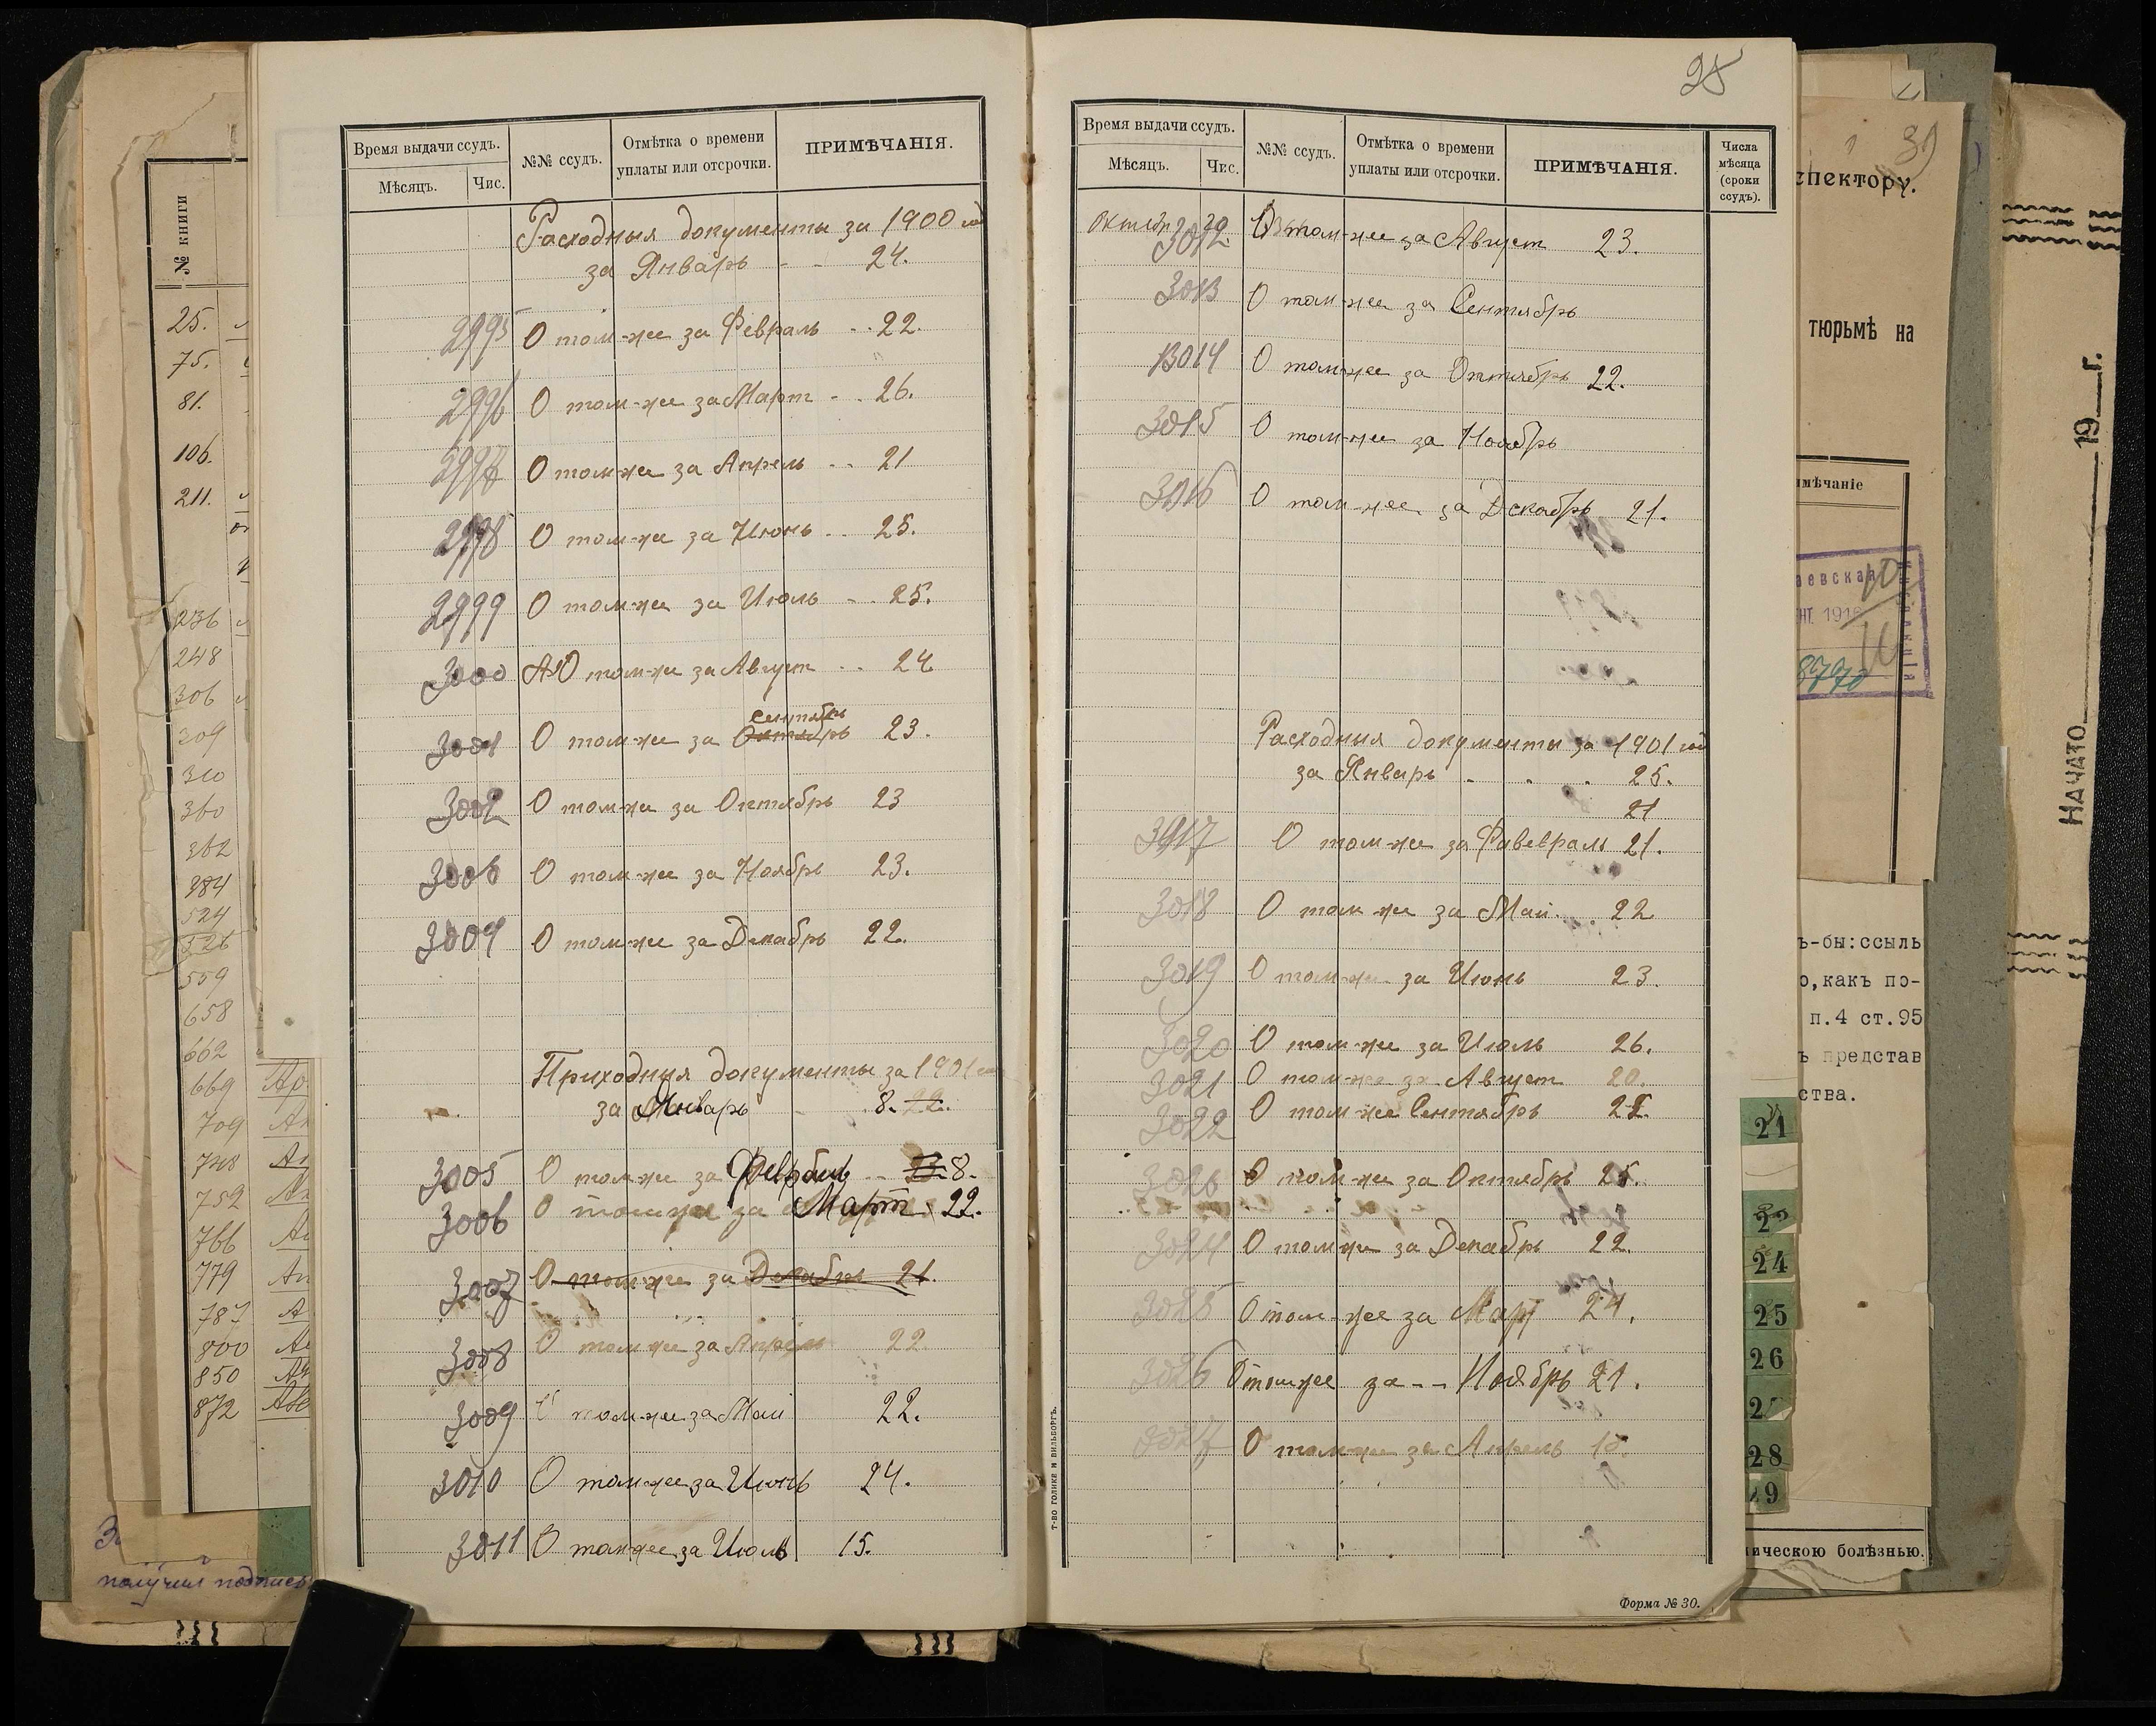 № книги
25.
75.
81.
106.
211.
236
248
306
309
310
360
362
384
524
526
559
658
662
669
709
748
752
766
779
787
800
850
872
получил подпись
Время выдачи ссудъ.
Мѣсяцъ.
Чис.
№№ ссудъ.
Отмѣтка о времени
уплаты или отсрочки.
ПРИМѢЧАНІЯ.
Расходныя документы за 1900 год
за Январь - - 24.
2995 О том-же за Февраль - - 22.
2996 О том-же за Март - . 26.
2997 О том-же за Апрель - - 21
2998 О том-же за Июнь - . 25.
2999 О том-же за Июль - . 25.
3000 О том-же за Август - . 24
сентябрь
3001 О том-же за Октябрь 23.
3002 О том-же за Октябрь 23
3003 О том-же за Ноябрь 23.
3004 О том-же за Декабрь 22.
Приходныя документы за 1901 год
за Январь - 8. 22.
3005 О том-же за Февраль - - 8.
3006 О том-же за Март 22.
3007 О том-же за Декабрь 21.
3008 О том-же за Апрель 22.
3009 О том-же за Май 22.
3010 О том-же за Июнь 24.
3011 О том-же за Июль 15.
25
Время выдачи ссудъ.
Мѣсяцъ.
Чис.
№№ ссудъ.
Отмѣтка о времени
уплаты или отсрочки.
ПРИМѢЧАНІЯ.
Числа
мѣсяца
(сроки
ссудъ).
3012 О том-же за Август 23.
3013 О том-же за Сентябрь
3014 О том-же за Октябрь 22.
3015 О том-же за Ноябрь
3016 О том-же за Декабрь 21.
Расходныя документы за 1901 год
за Январь - . . 25.
21
3017 О том-же за Февраль 21.
3018 О том же за Май . . 22
3019 О том-же за Июнь 23.
3020 О том-же за Июль 26.
3021 О том-же за Август 20.
3022 О том-же Сентябрь 22.
3023 О том-же за Октябрь 25.
3024 О том-же за Декабрь 22.
3025 О том-же за Март 24.
3026 О том же за - - Ноябрь 21.
3027 О том-же за Апрель 18.
Т-во Голике и Вильборгъ.
Форма № 30.
39
спектору.
тюрьмѣ на
имѣчаніе
аевская
8770
ъ-бы:ссыль
о,какъ по-
п.4 ст.95
ъ представ
ства.
21
24
25
26
28
ическою болѣзнью.
НАЧАТО 19 г.